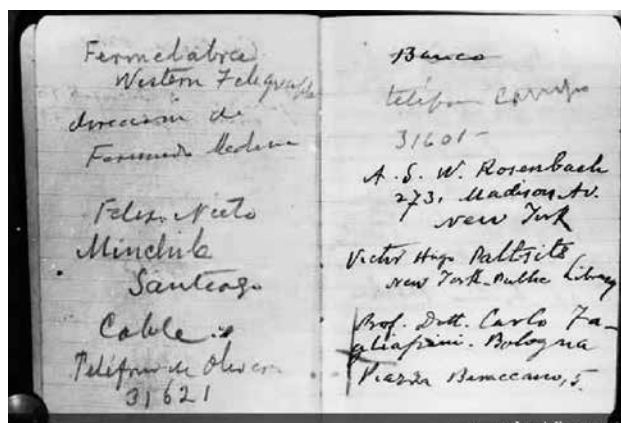 Fermelabra
Western Telegraph
dirección de
Fernando Medina
Felix Nieto
Minchile
Santiago
Cable
Teléfono de Oliver
31621
Banco
teléfono
31601-
A. S. W. Rosenbach
273, Madison Av.
New York
Victor Hugo Paltsits
New York Public Library
Prof. Dott. Carlo Ta-
gliafrini. Bologna
Piazza
5.